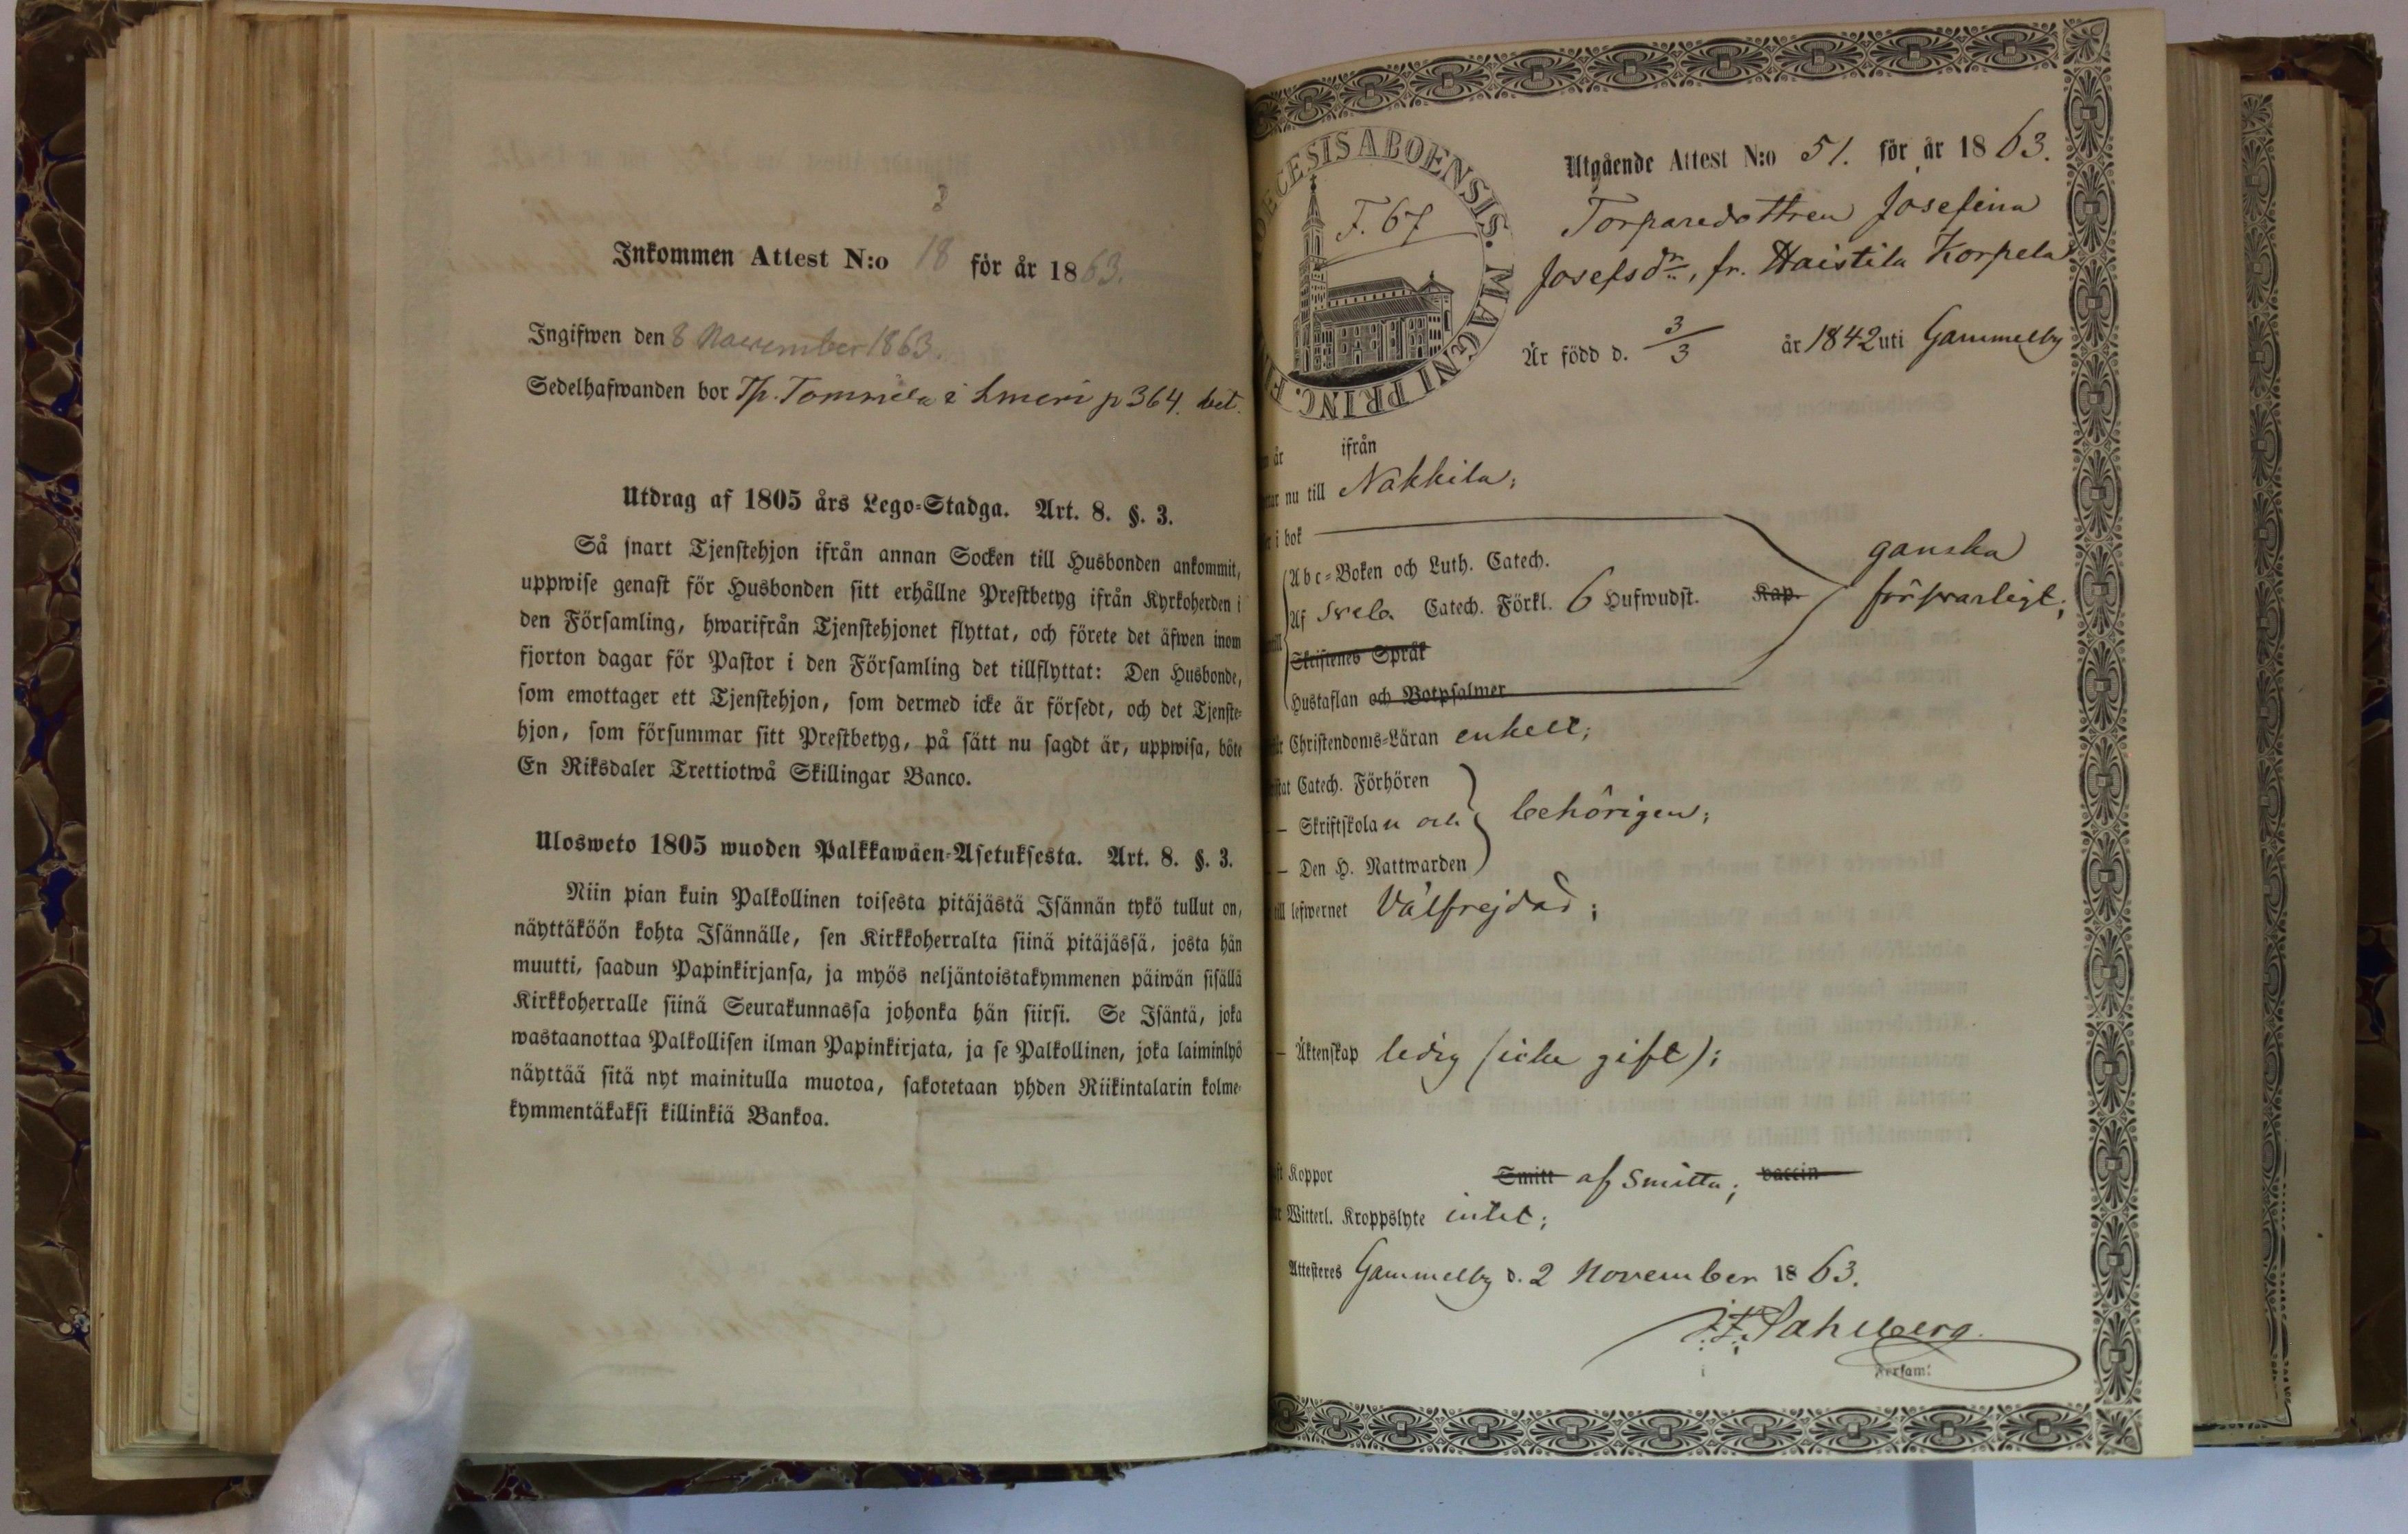 Inkommen Attest N:o 18 för år 1863.
Ingifwen den 8 November 1863.
Sedelhafwanden bor Tp. Tommila i p 364. bet.
Utdrag af 1805 års Lego-Stadga. Art. 8. §. 3.
Så snart Tjenstehjon ifrån annan Socken till Husbonden ankommit,
uppwise genast för Husbonden sitt erhållne Prestbetyg ifrån Kyrkoherden i
den Församling, hwarifrån Tjenstehjonet flyttat, och förete det äfwen inom
fjorton dagar för Pastor i den Församling det tillflyttat: Den Husbonde,
som emottager ett Tjenstehjon, som dermed icke är försedt, och det Tjenste-
hjon, som försummar sitt Prestbetyg, på sätt nu sagdt är, uppwisa, böte
En Riksdaler Trettiotwå Skillingar Banco.
Ulosweto 1805 wuoden Palkkawäen-Asetuksesta. Art. 8. §. 3.
Niin pian kuin Palkollinen toisesta pitäjästä Isännän tykö tullut on,
näyttäköön kohta Isännälle, sen Kirkkoherralta siinä pitäjässä, josta hän
muutti, saadun Papinkirjansa, ja myös neljäntoistakymmenen päiwän sisällä
Kirkkoherralle siinä Seurakunnassa johonka hän siirsi. Se Isäntä, joka
wastaanottaa Palkollisen ilman Papinkirjata, ja se Palkollinen, joka laiminlyö
näyttää sitä nyt mainitulla muotoa, sakotetaan yhden Riikintalarin kolme-
kymmentäkaksi killinkiä Bankoa.
ŒCESIS ABOENSIS. MAGNI PRINC. F
F. 67
Utgående Attest N:o 51. för år 1863.
Torparedottren Josefina
Josefsdr, fr. Haistila Korpela
Är född d. 3/3 år 1842 uti Gammelby
år ifrån
nu till Nakkila;
i bok
Abc-Boken och Luth. Catech.
ganska
Af Sveb. Catech. Förkl. 6 Hufwudst. Kap. försvarligt;
Skriftenes Språk
Hustaflan och Botpsalmer
Christendoms-Läran enkelt;
Catech. Förhören
– Skriftskolan och behörigen;
– Den H. Nattwarden
till lefwernet Välfrejdad;
– Äktenskap ledig (icke gift);
Koppor Smitt af Smitta; vaccin
Witterl. Kroppslyte intet;
Attesteres Gammelby d. 2 November 1863.
Sahlberg.
i Försam: